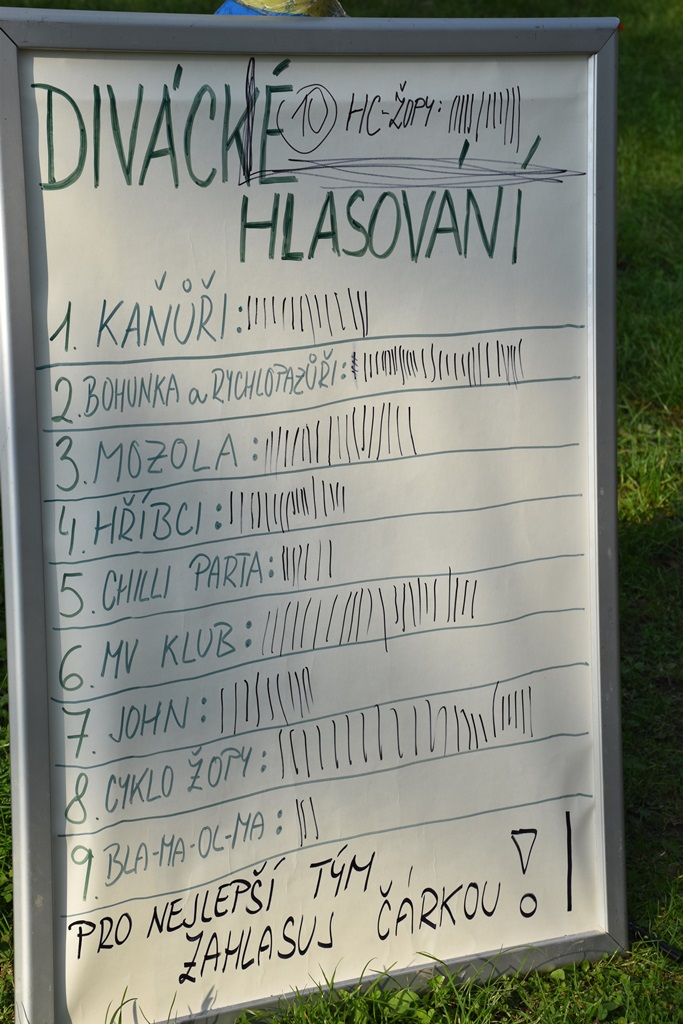 DIVÁCKÉ 10 HC-ŽOPY:
HLASOVÁNÍ
1. KAŇŮŘI:
2. BOHUNKA a RYCHLOPAZŮŘI:
3. MOZOLA:
4. HŘÍBCI:
5. CHILLI PARTA:
6. MV KLUB:
7. JOHN:
8. CYKLO ŽOPY:
9. BLA-MA-OL-MA:
PRO NEJLEPŠÍ TÝM
ZAHLASUJ ČÁRKOU!